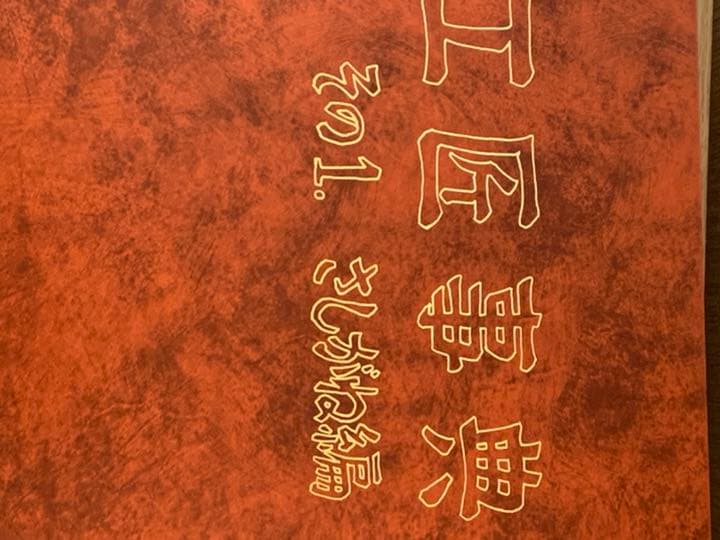 工匠事典
その1. さしがね編